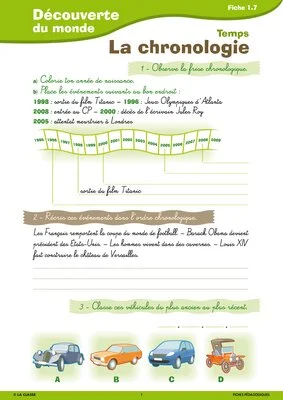 Découverte
du monde
Fiche 1.7
Temps
La chronologie
1 - Observe la frise chronologique.
a) Colorie ton année de naissance.
b) Place les événements suivants au bon endroit :
1998 : sortie du film Titanic – 1996 : Jeux Olympiques d'Atlanta
2008 : entrée au CP – 2000 : décès de l'écrivain Jules Roy
2005 : attentat meurtrier à Londres
sortie du film Titanic
2 - Récris ces événements dans l'ordre chronologique.
Les Français remportent la coupe du monde de football. – Barack Obama devient
président des Etats-Unis. – Les hommes vivent dans des cavernes. – Louis XIV
fait construire le château de Versailles.
3 - Classe ces véhicules du plus ancien au plus récent.
A B C D
© LA CLASSE
1
FICHES PÉDAGOGIQUES